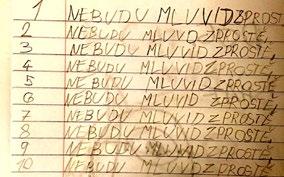 1 NEBUDU MLUVID ZPROSTĚ
2 NEBUDU MLUVID ZPROSTĚ,
3 NEBUDU MLUVID ZPROSTĚ,
4 NEBUDU MLUVID ZPROSTĚ,
5 NEBUDU MLUVID ZPROSTĚ,
6 NEBUDU MLUVID ZPROSTĚ,
7 NEBUDU MLUVID ZPROSTĚ,
8 NEBUDU MLUVID ZPROSTĚ,
9 NEBUDU MLUVID ZPROSTĚ,
10 NEBUDU MLUVID ZPROSTĚ,